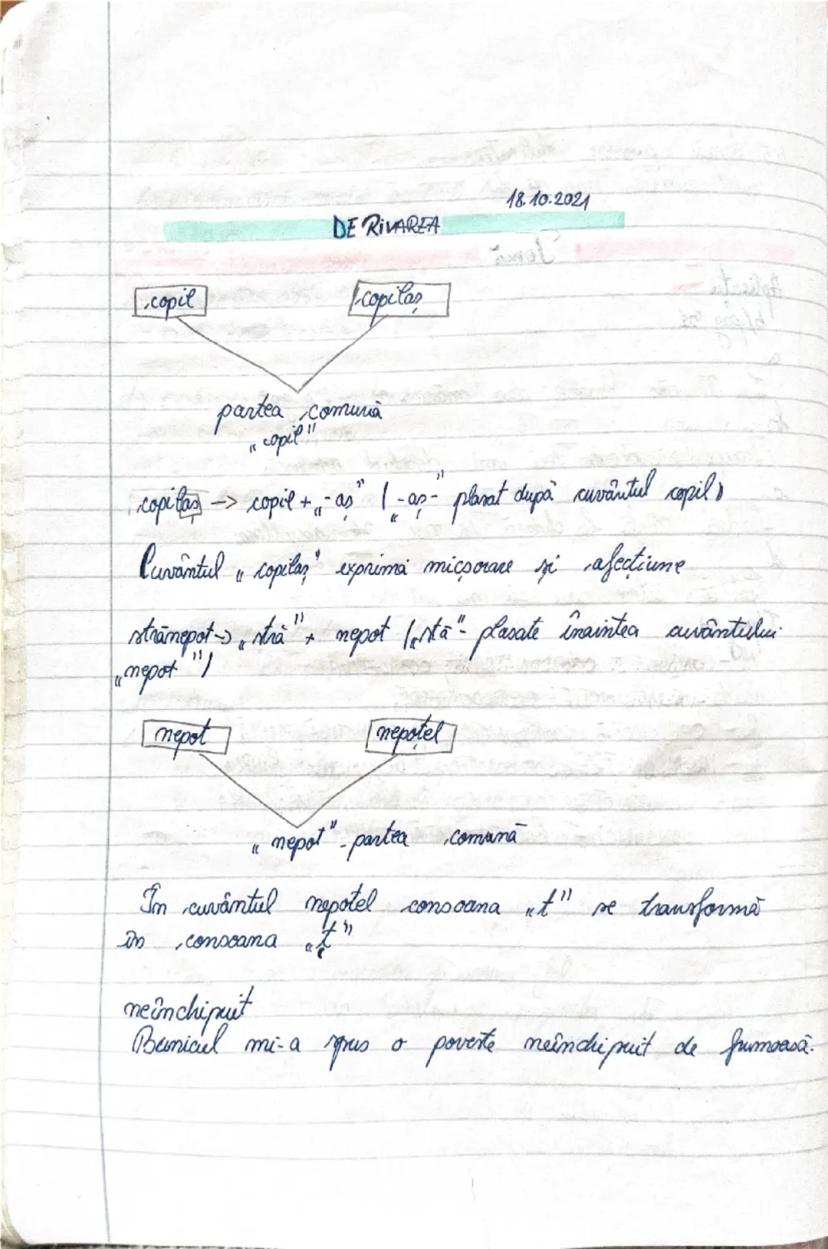 18.10.2021
DERIVAREA
copil copilaș
partea comună
„copil"
copilaș -> copil + „-aș" („-aș-" plasat după cuvântul copil)
Cuvântul „copilaș" exprimă micșorare și afecțiune
strănepot -> „stră" + nepot („stă"- plasate înaintea cuvântului
„nepot")
nepot nepoțel
„nepot" - partea comună
În cuvântul nepoțel consoana „t" se transformă
în consoana „ț"
neînchipuit
Bunicul mi-a spus o poveste neînchipuit de frumoasă.